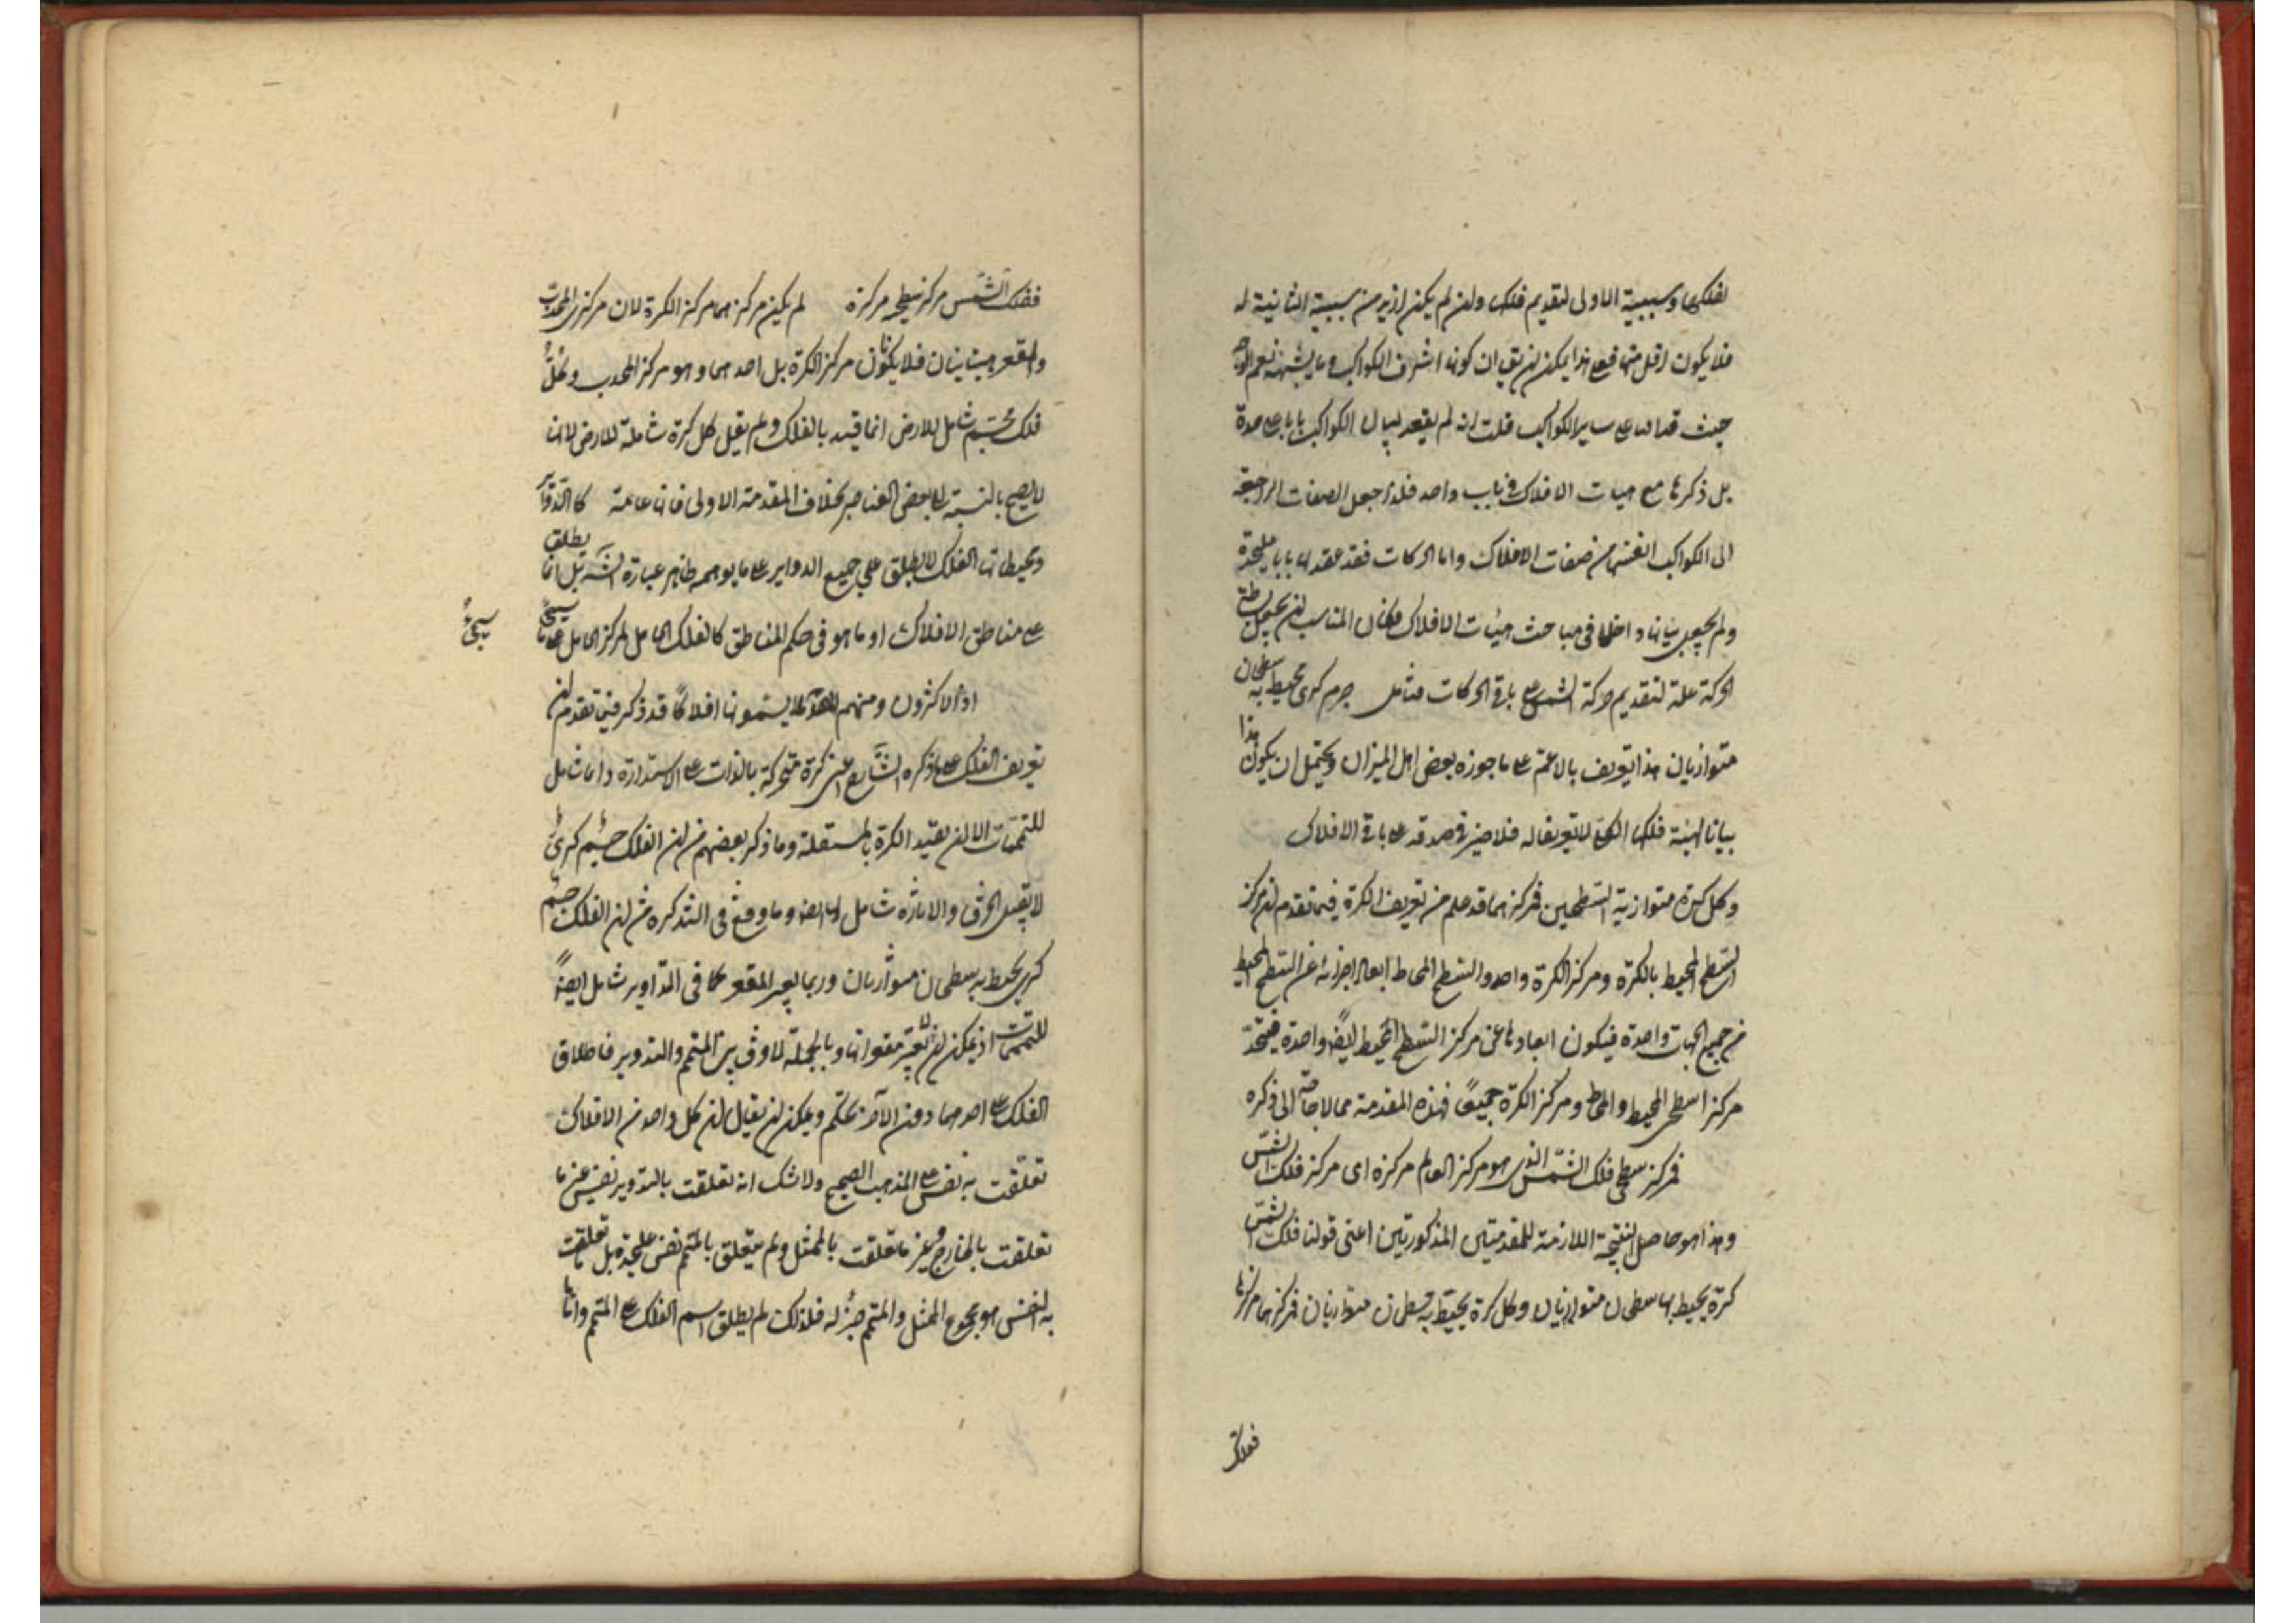 لفلكها وسببية الاولى لتقديم فلك ولن لم يكن ازيد من سببية الثانية له
فلا يكون اقل منها فمع هذا يمكن ان يق ان كونها اشرف الكواكب وما يشبهه نعم
حيث على ساير الكواكب قلت انه لم يعقد لبيان الكواكب بابا على حدة
بل ذكرها مع هيات الافلاك في باب واحد فلذا جعل الصفات الراجعة
الى الكواكب انفسها من صفات الافلاك واما الحركات فقد عقد لها بابا عليحدة
ولم يجعل بيانها داخلا في مباحث هيئات الافلاك فكان المناسب ان يجعل
الحركة علة لتقديم حركة الشمس على باقي الحركات فتأمل جرم كرى محيط به سطحان
متوازيان هذا تعريف بالاعم على ما جوزه بعض اهل الميزان ويحتمل ان يكون هذا
بيانا لهيئة فلكها الكلي لا تعريفا له فلا ضير في صدقه على باقي الافلاك
وكل كرة متوازية السطحين فمركزهما قد علم من تعريف الكرة فيما تقدم ان مركز
السطح المحيط بالكرة ومركز الكرة واحد والسطح المحاط ابعاد اجزائه عن السطح المحيط
من جميع الجهات واحدة فيكون ابعادها عن مركز السطح المحيط ايضا واحدة فيتحد
مركز السطح المحيط والمحاط ومركز الكرة جميعا فهذه المقدمة مما لا حاجة الى ذكره
فمركز سطحي فلك الشمس الذي هو مركز العالم مركزه اى مركز فلك الشمس
وهذا هو حاصل النتيجة اللازمة للمقدمتين المذكورتين اعنى قولنا فلك الشمس
كرة يحيط بها سطحان متوازيان وكل كرة يحيط به سطحان متوازيان فمركزهما مركزها
ففلك
ففلك الشمس مركز سطحيه مركزه لم يكن مركزهما مركز الكرة لان مركزى المحدب
والمقعر متباينان فلا يكونان مركز الكرة بل احدهما وهو مركز المحدب وكل
فلك مجسم شامل للارض انما قيد بالفلك ولم يقل كل كرة شاملة للارض لانها
لا يصح بالنسبة الى بعض العناصر بخلاف المقدمة الاولى فانها عامة كالتداوير
ومحيطاتها الفلك لا يطلق على جميع الدواير على ما يوهمه ظاهر عبارة الشـ بل انما يطلق
على مناطق الافلاك او ما هو في حكم المناطق كالفلك الحامل لمركز الحامل على ما سيجئ
سيجئ
اذ الاكثرون ومنهم لا يسمونها افلاكا قد ذكر فيما تقدم ان
تعريف الفلك على ما ذكره الشارح اعنى كرة متحركة بالذات على الاستدارة دائما شامل
للمتممات الا ان يقيد الكرة بالمستقلة وما ذكر بعضهم من ان الفلك جسم كرى
لا يقبل الخرق والانارة شامل لها ايضا وما وقع في التذكرة من ان الفلك جسم
كرى يحيط به سطحان متوازيان وربما لم يعتبر المقعر كما في التداوير شامل ايضا
للمتممات اذ يمكن ان لا يعتبر مقعراتها وبالجملة لا فرق بين المتمم والتدوير فاطلاق
الفلك على احدهما دون الآخر تحكم ويمكن ان يقال ان كل واحد من الافلاك
تعلقت به نفس على المذهب الصحيح ولا شك انه تعلقت بالتدوير نفس غير ما
تعلقت بالخارج وغير ما تعلقت بالممثل ولم يتعلق بالمتمم نفس عليحدة بل ما تعلقت
به النفس هو مجموع الممثل والمتمم جزء له فلذلك لم يطلق اسم الفلك على المتمم واما